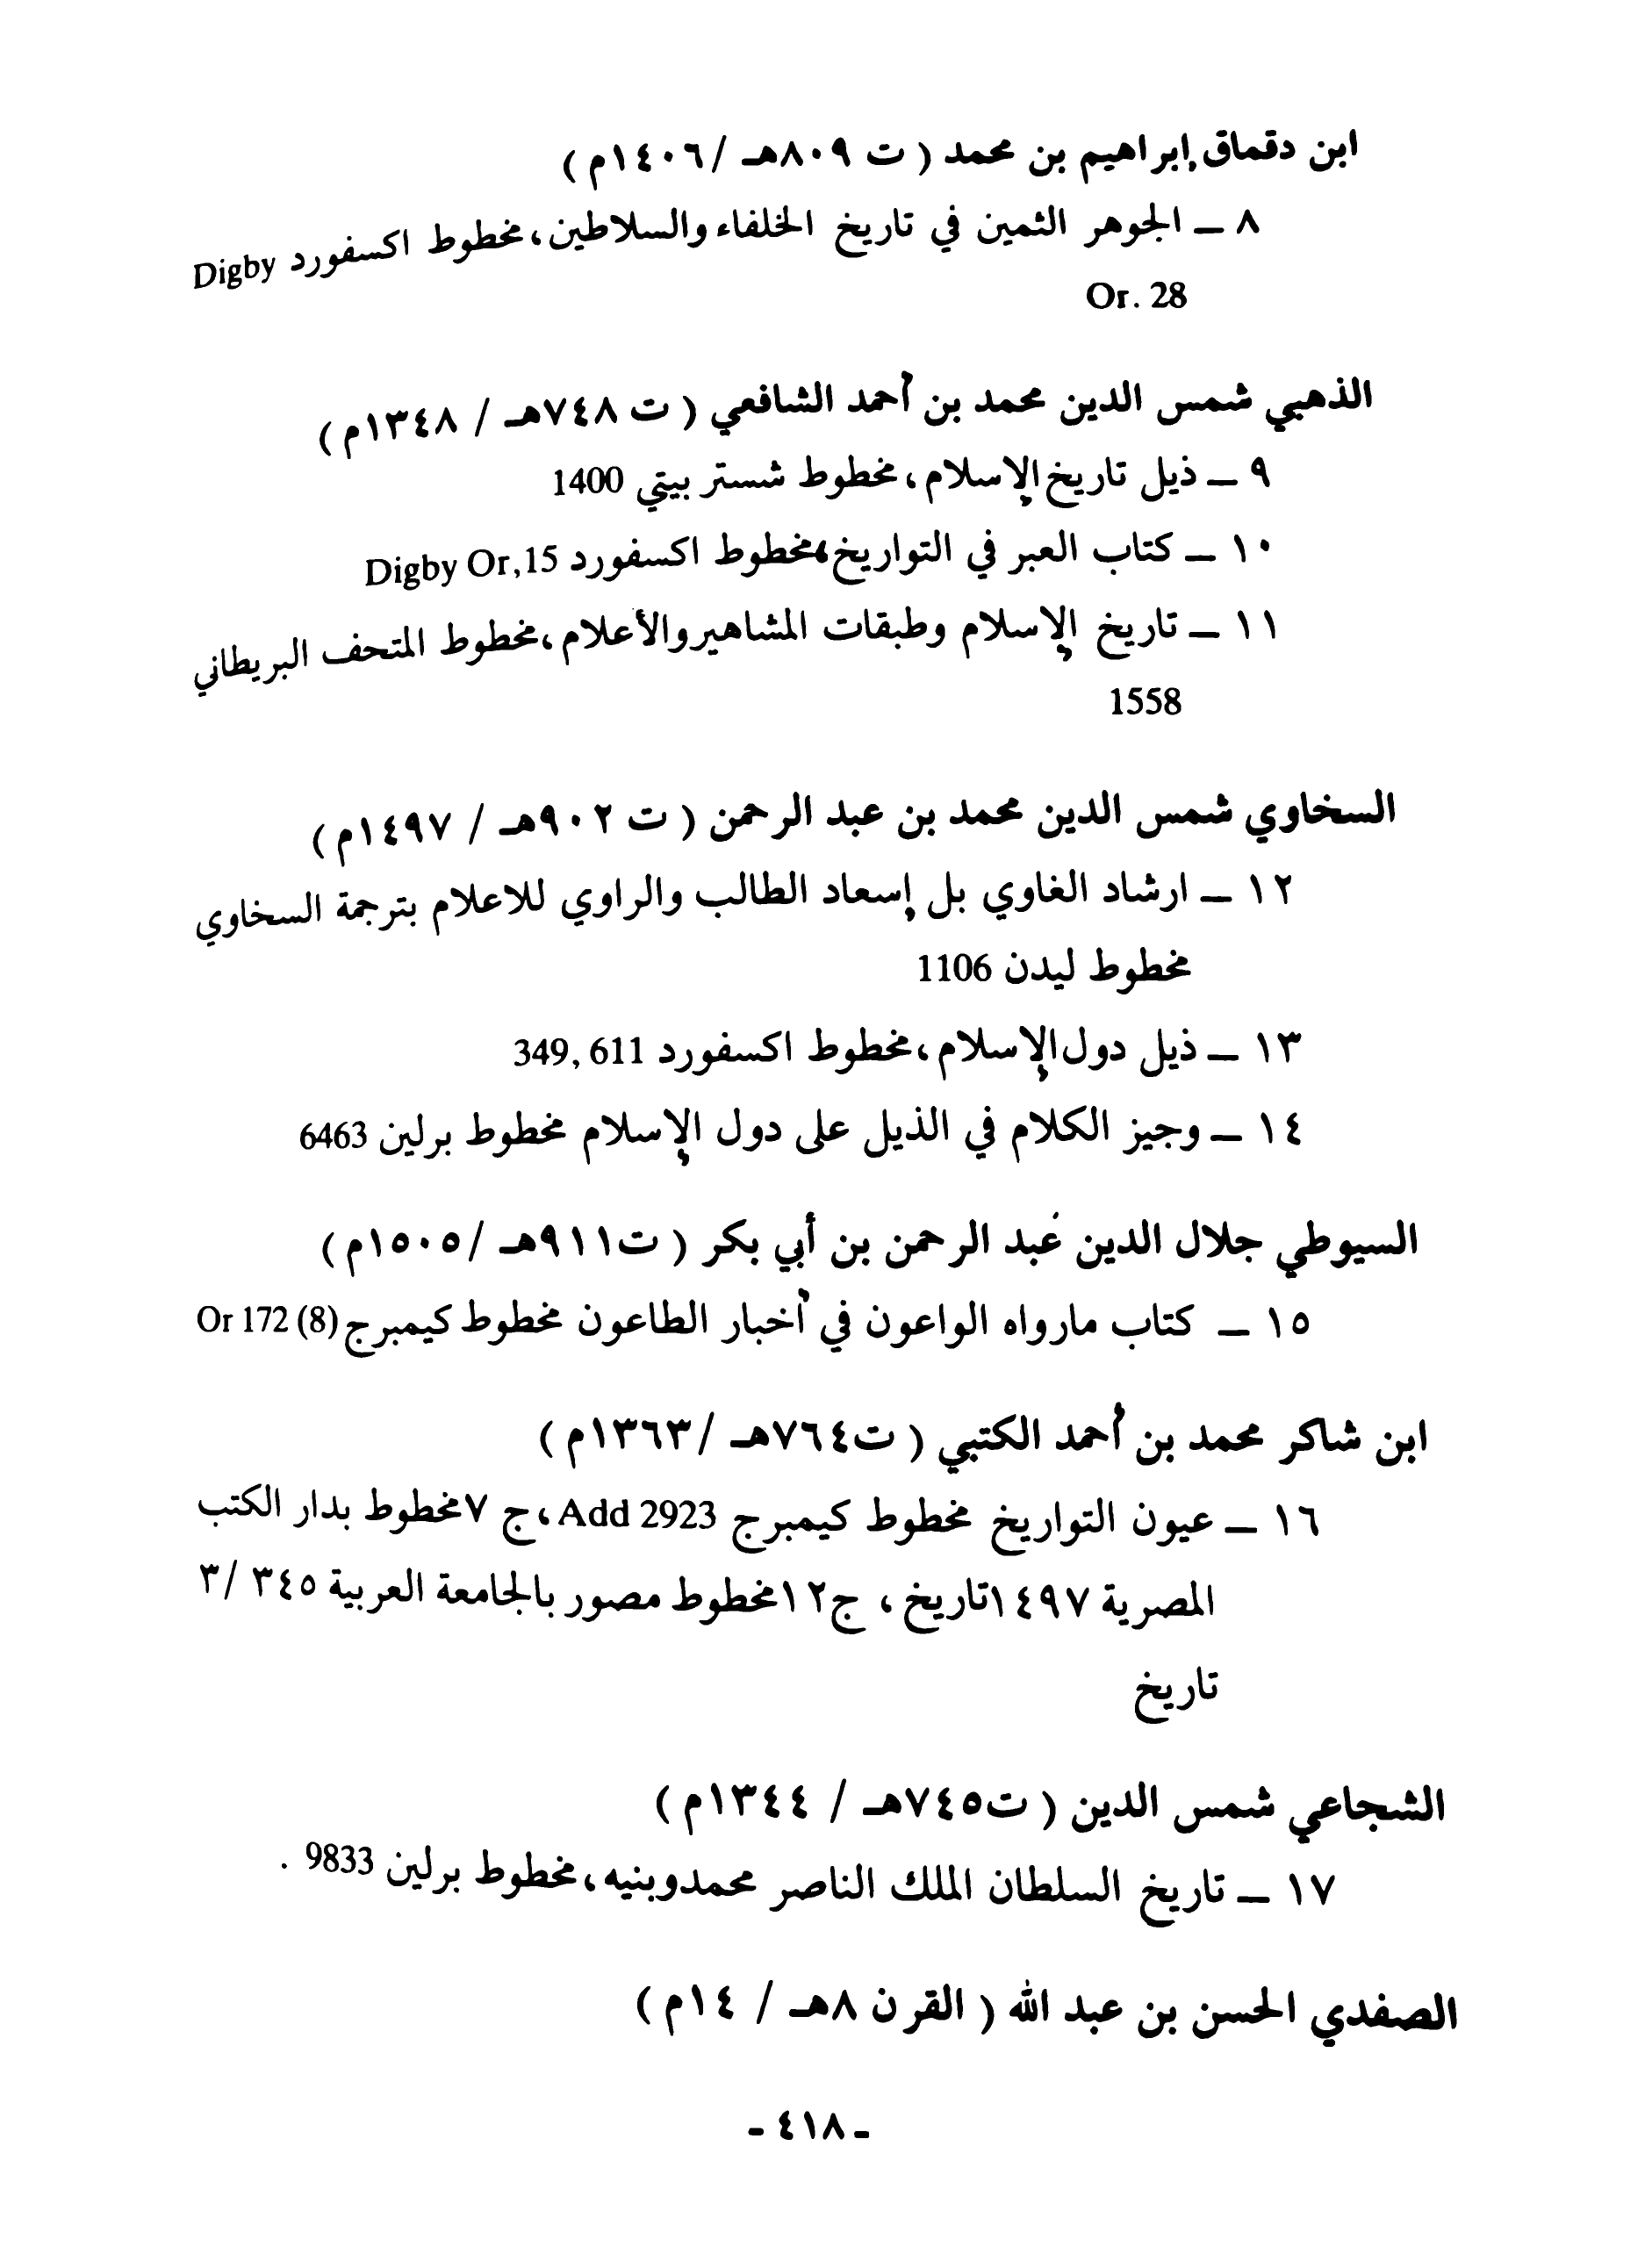 ابن دقماق إبراهيم بن محمد ( ت ٨٠٩هـ /١٤٠٦م )
٨ ــ الجوهر الثمين في تاريخ الخلفاء والسلاطين، مخطوط اكسفورد Digby
Or. 28
الذهبي شمس الدين محمد بن أحمد الشافعي ( ت ٧٤٨هـ / ١٣٤٨م )
٩ ــ ذيل تاريخ الإسلام، مخطوط شستر بيتي 1400
١٠ ــ كتاب العبر في التواريخ، مخطوط اكسفورد Digby Or,15
١١ ــ تاريخ الإسلام وطبقات المشاهير والأعلام، مخطوط المتحف البريطاني
1558
السخاوي شمس الدين محمد بن عبد الرحمن ( ت ٩٠٢هـ / ١٤٩٧م )
١٢ ــ ارشاد الغاوي بل إسعاد الطالب والراوي للاعلام بترجمة السخاوي
مخطوط ليدن 1106
١٣ ــ ذيل دول الإسلام، مخطوط اكسفورد 611 ,349
١٤ ــ وجيز الكلام في الذيل على دول الإسلام مخطوط برلين 6463
السيوطي جلال الدين عبد الرحمن بن أبي بكر ( ت٩١١هـ /١٥٠٥م )
١٥ ــ كتاب مارواه الواعون في أخبار الطاعون مخطوط كيمبرج Or 172 (8)
ابن شاكر محمد بن أحمد الكتبي ( ت٧٦٤هـ /١٣٦٣م )
١٦ ــ عيون التواريخ مخطوط كيمبرج Add 2923، ج ٧ مخطوط بدار الكتب
المصرية ١٤٩٧ تاريخ ، ج١٢ مخطوط مصور بالجامعة العربية ٣٤٥ /٣
تاريخ
الشجاعي شمس الدين ( ت٧٤٥هـ / ١٣٤٤م )
١٧ ــ تاريخ السلطان الملك الناصر محمد وبنيه، مخطوط برلين 9833 .
الصفدي الحسن بن عبد الله ( القرن ٨هـ / ١٤م )
- ٤١٨ -